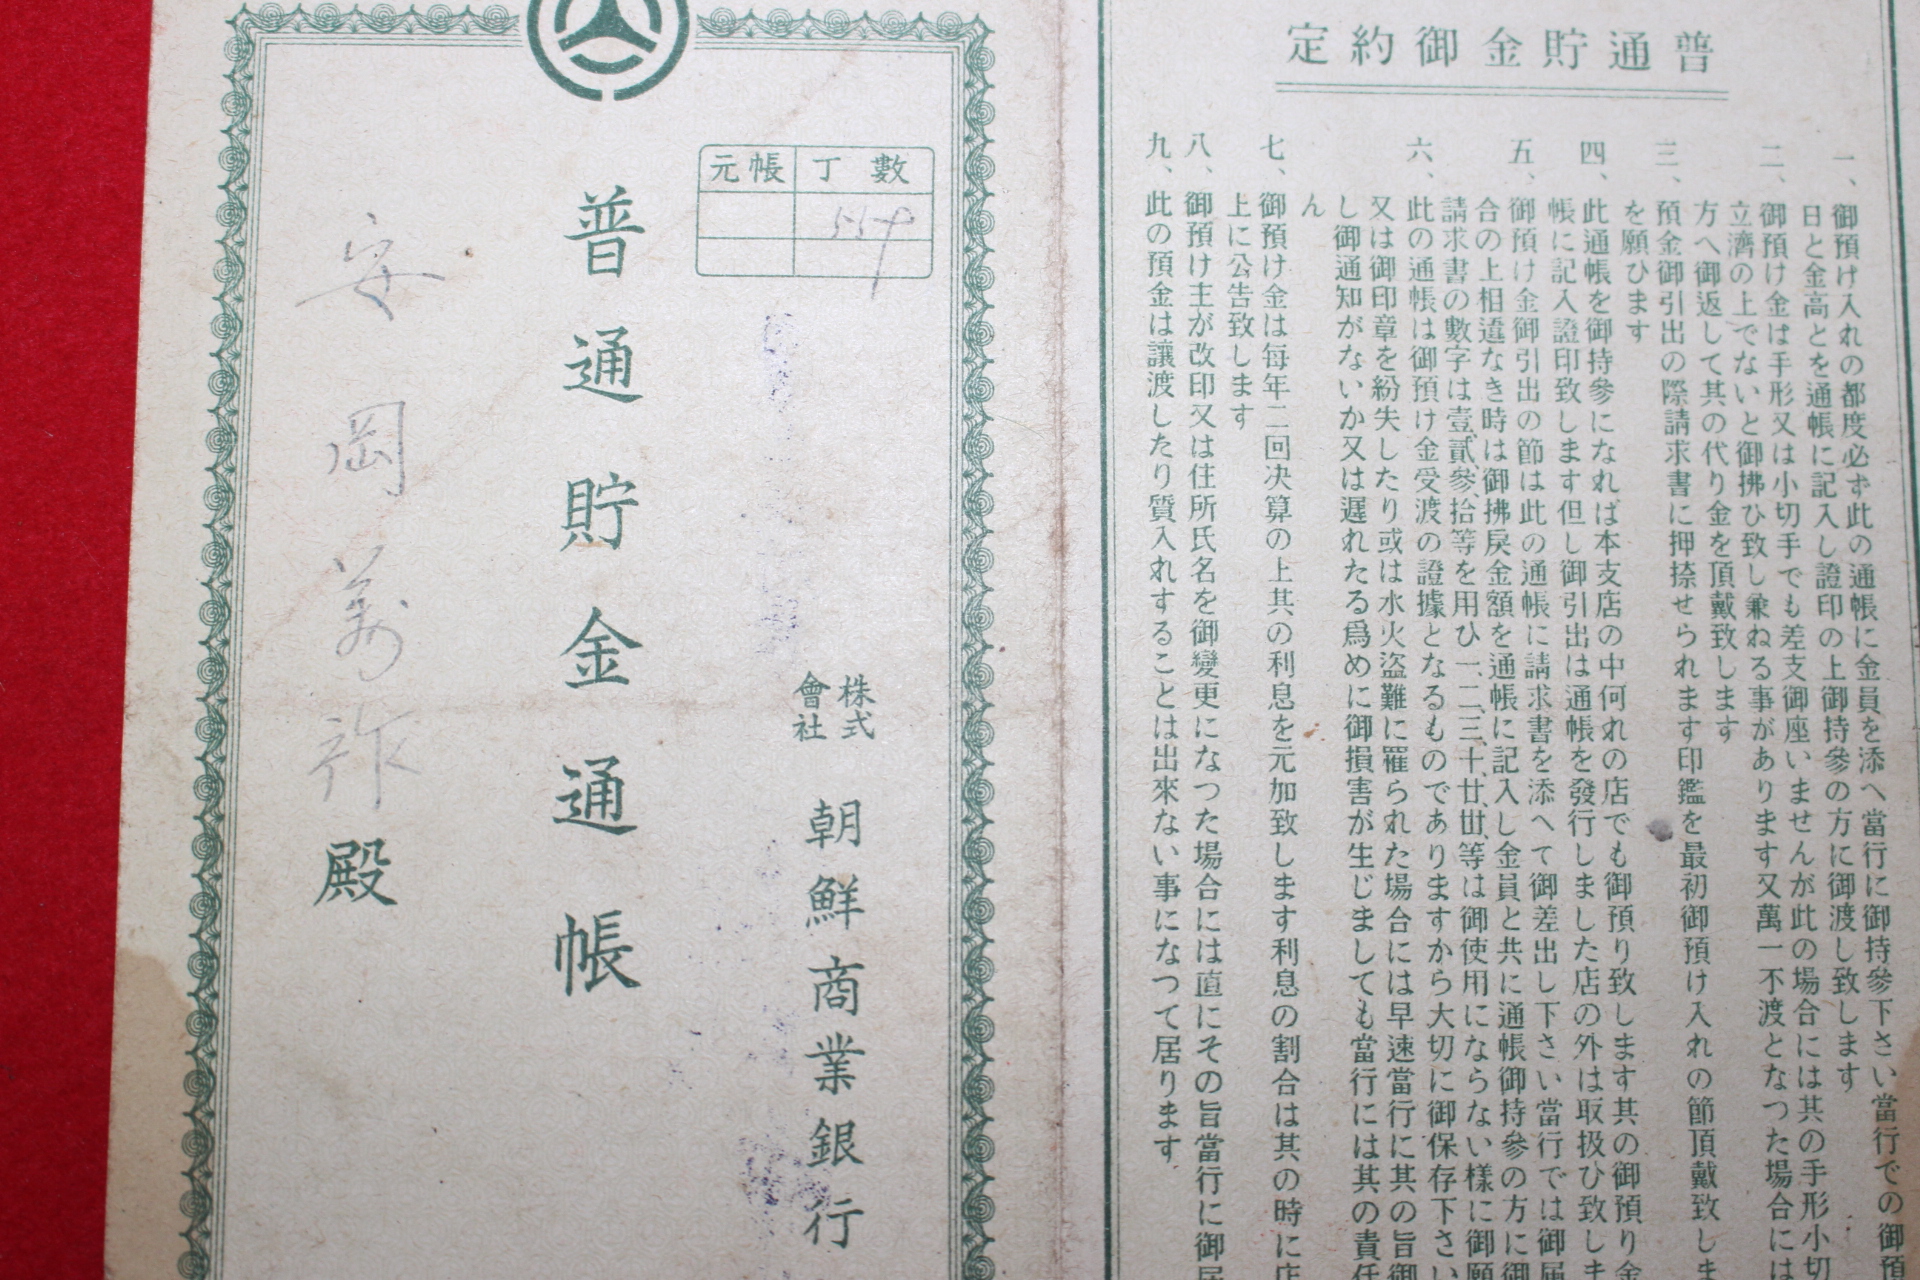 普通貯金御約定
一、御預け入れの都度必ず此の通帳に金員を添へ當行に御持參下さい當行での御預
日と金高とを通帳に記入し證印の上御持參の方に御渡し致します
二、御預け金は手形又は小切手でも差支御座いませんが此の場合には其の手形小切
立濟の上でないと御拂ひ致し兼ねる事があります又萬一不渡となつた場合には
方へ御返して其の代り金を頂戴致します
三、預金御引出の際請求書に押捺せられます印鑑を最初御預け入れの節頂戴致しま
を願ひます
四、此通帳を御持參になれば本支店の中何れの店でも御預り致します其の御預り金
帳に記入證印致します但し御引出は通帳を發行しました店の外は取扱ひ致しま
五、御預け金御引出の節は此の通帳に請求書を添へて御差出し下さい當行では御届
合の上相違なき時は御拂戻金額を通帳に記入し金員と共に通帳御持參の方に御
請求書の數字は壹、貳、參、拾等を用ひ一、二、三、十、廿、丗、等は御使用にならない樣に御願
六、此の通帳は御預け金受渡の證據となるものでありますから大切に御保存下さい
又は御印章を紛失したり或は水火盜難に罹られた場合には早速當行に其の旨御
し御通知がないか又は遲れたる爲めに御損害が生じましても當行には其の責任
ん
七、御預け金は每年二回決算の上其の利息を元加致します利息の割合は其の時に店
上に公告致します
八、御預け主が改印又は住所氏名を御變更になつた場合には直にその旨當行に御届
九、此の預金は讓渡したり質入れすることは出來ない事になつて居ります
元帳 丁數
557
株式會社 朝鮮商業銀行
普通貯金通帳
安岡萬祚殿